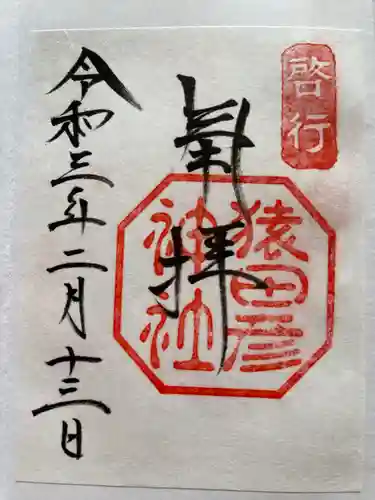 啓行
奉拝
猿田彦
神社
令和三年二月十三日